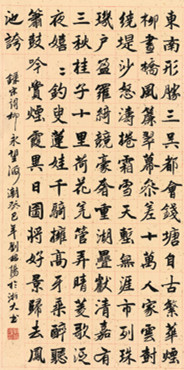 東南形勝三吳都會錢塘自古繁華煙
柳畫橋風簾翠幕參差十萬人家雲樹
繞堤沙怒濤卷霜雪天塹無涯市列珠
璣戶盈羅綺競豪奢重湖疊巘清嘉有
三秋桂子十里荷花羌管弄晴菱歌泛
夜嬉〻釣叟蓮娃千騎擁高牙乘醉聽
簫鼓吟賞煙霞異日圖將好景歸去鳳
池誇
錄宋詞柳永望海潮癸巳年劉